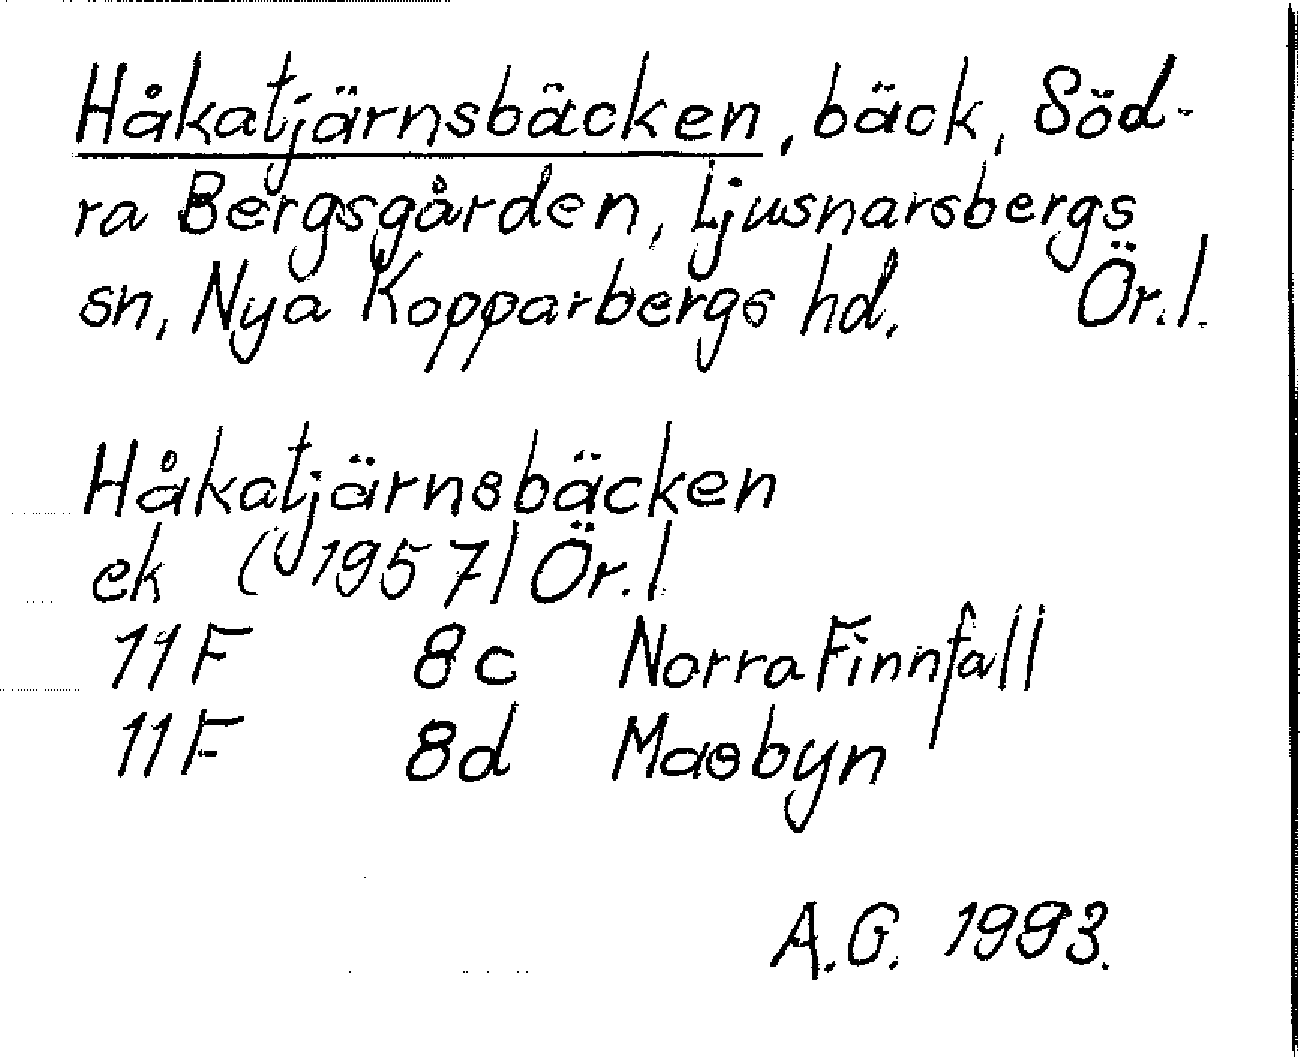 Håkatjärnsbäcken, bäck, Söd-
ra Bergsgården, Ljusnarsbergs
sn, Nya Kopparbergs hd. Ör.l.
Håkatjärnsbäcken
ek (1957) Ör.l.
11F 8c Norra Finnfall
11F 8d Masbyn
A.G. 1993.